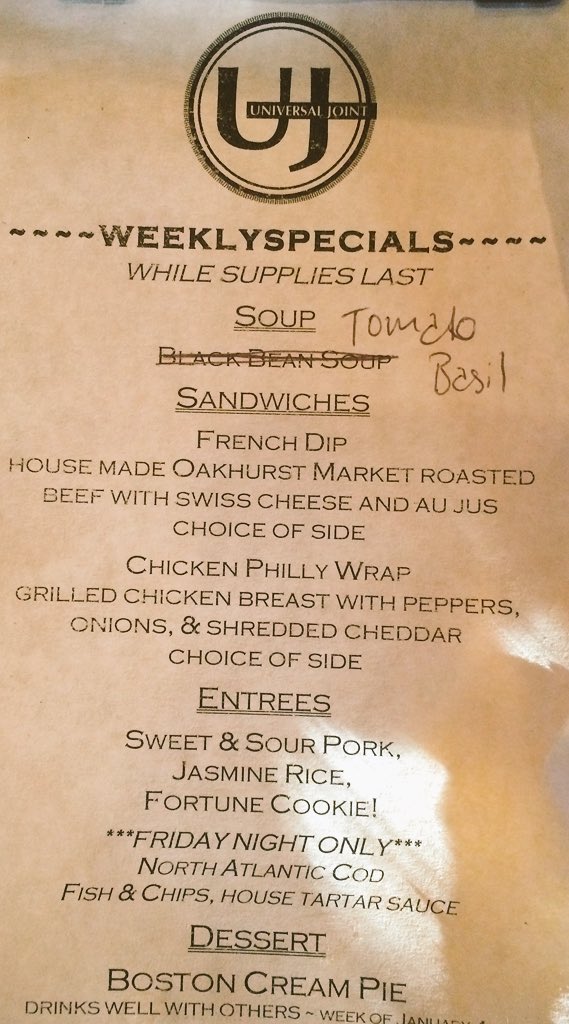 UJ
UNIVERSAL JOINT
~~~~WEEKLYSPECIALS~~~~
WHILE SUPPLIES LAST
SOUP Tomato
BLACK BEAN SOUP Basil
SANDWICHES
FRENCH DIP
HOUSE MADE OAKHURST MARKET ROASTED
BEEF WITH SWISS CHEESE AND AU JUS
CHOICE OF SIDE
CHICKEN PHILLY WRAP
GRILLED CHICKEN BREAST WITH PEPPERS,
ONIONS, & SHREDDED CHEDDAR
CHOICE OF SIDE
ENTREES
SWEET & SOUR PORK,
JASMINE RICE,
FORTUNE COOKIE!
***FRIDAY NIGHT ONLY***
NORTH ATLANTIC COD
FISH & CHIPS, HOUSE TARTAR SAUCE
DESSERT
BOSTON CREAM PIE
DRINKS WELL WITH OTHERS ~ WEEK OF JANUARY